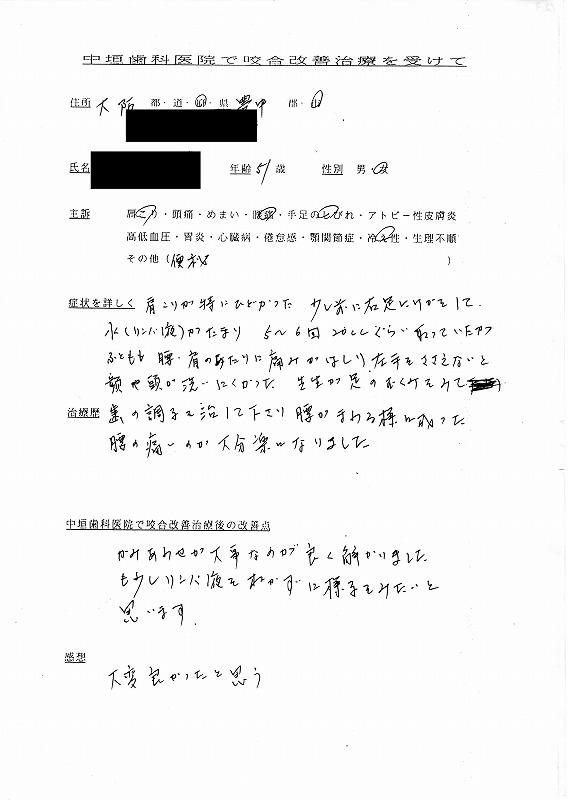 中垣歯科医院で咬合改善治療を受けて
住所 大阪 都・道・府・県 豊中 郡・市
氏名 年齢 51 歳 性別 男・女
主訴 肩こり・頭痛・めまい・腰痛・手足のしびれ・アトピー性皮膚炎
高低血圧・胃炎・心臓病・倦怠感・顎関節症・冷え性・生理不順
その他（便秘 ）
症状を詳しく 肩こりが特にひどかった 少し前に右足にけがをして、
水(リンパ液)がたまり 5～6回 20ccぐらい取っていたが
ふともも 腰・肩のあたりに痛みがはしり 左手をささえないと
顔や頭が洗いにくかった 先生が足のむくみをみて
治療歴 歯の調子を治して下さり 腰がまわる様になった
腰の痛いのが大分楽になりました
中垣歯科医院で咬合改善治療後の改善点
かみあわせが大事なのが良く解かりました
もう少しリンパ液をぬかずに様子をみたいと
思います
感想
大変良かったと思う